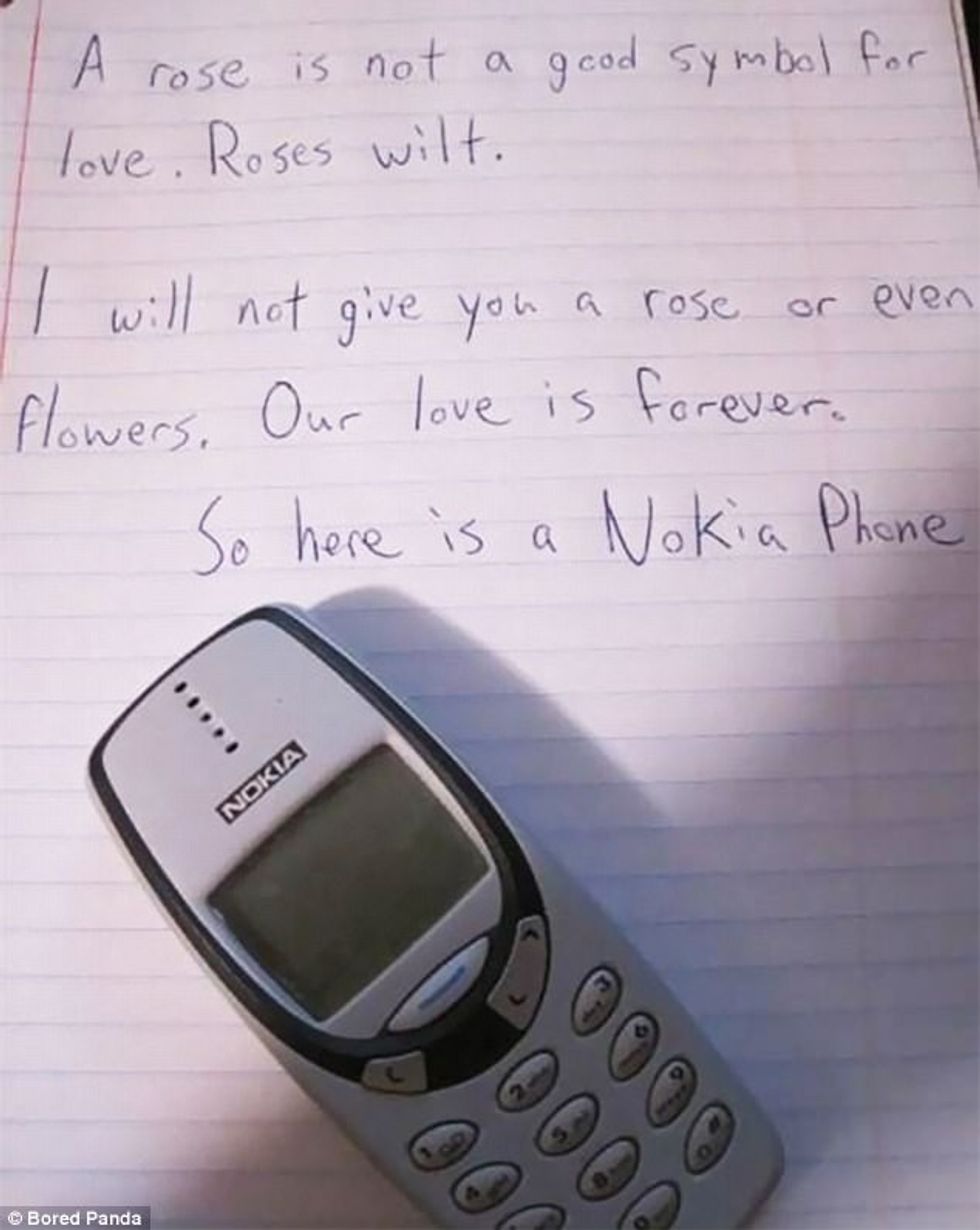 A rose is not a good symbol for
love. Roses wilt.
I will not give you a rose or even
flowers. Our love is forever.
So here is a Nokia Phone
NOKIA
C
1
2
3
4
5
6
8
9
#
0
© Bored Panda